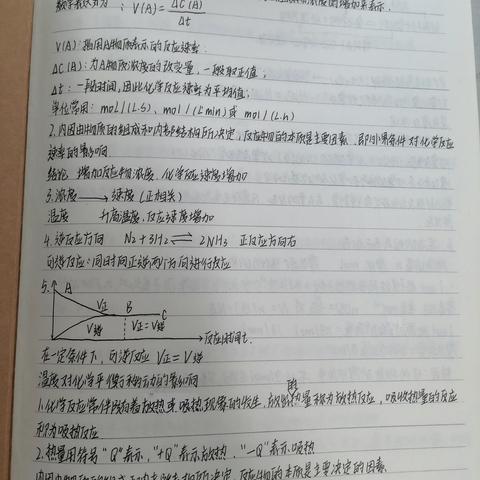 数学表达式为 : V(A)= ΔC(A) / Δt
V(A):指用A物质表示的反应速率.
ΔC(A):为A物质浓度的改变量,一般取正值;
Δt:一段时间,因此化学反应速率为平均值;
单位常用:mol/(L·S)、mol/(L·min)或mol/(L·h)
2.内因由物质的组成和内部结构所决定,反应物的本质是主要因素.即外界条件对化学反应
速率的影响
结论 增加反应物浓度,化学反应速度增加
3.浓度 ⟶ 速度(正相关)
温度 升高温度,反应速度增加
4.逆反应方向 N₂+3H₂ ⇌ 2NH₃ 正反应方向右
可逆反应:同时向正逆两个方向进行反应
5. A
V正 B C
V逆 V正=V逆
反应时间t.
在一定条件下,可逆反应 V正=V逆
温度对化学平衡移动的影响
1.化学反应常伴随着放热或吸热现象的发生,放出热量称为放热反应,吸收热量的反应
称为吸热反应
2.热量用符号“Q”表示,“+Q”表示放热,“-Q”表示吸热
反应物的本质是主要决定的因素.